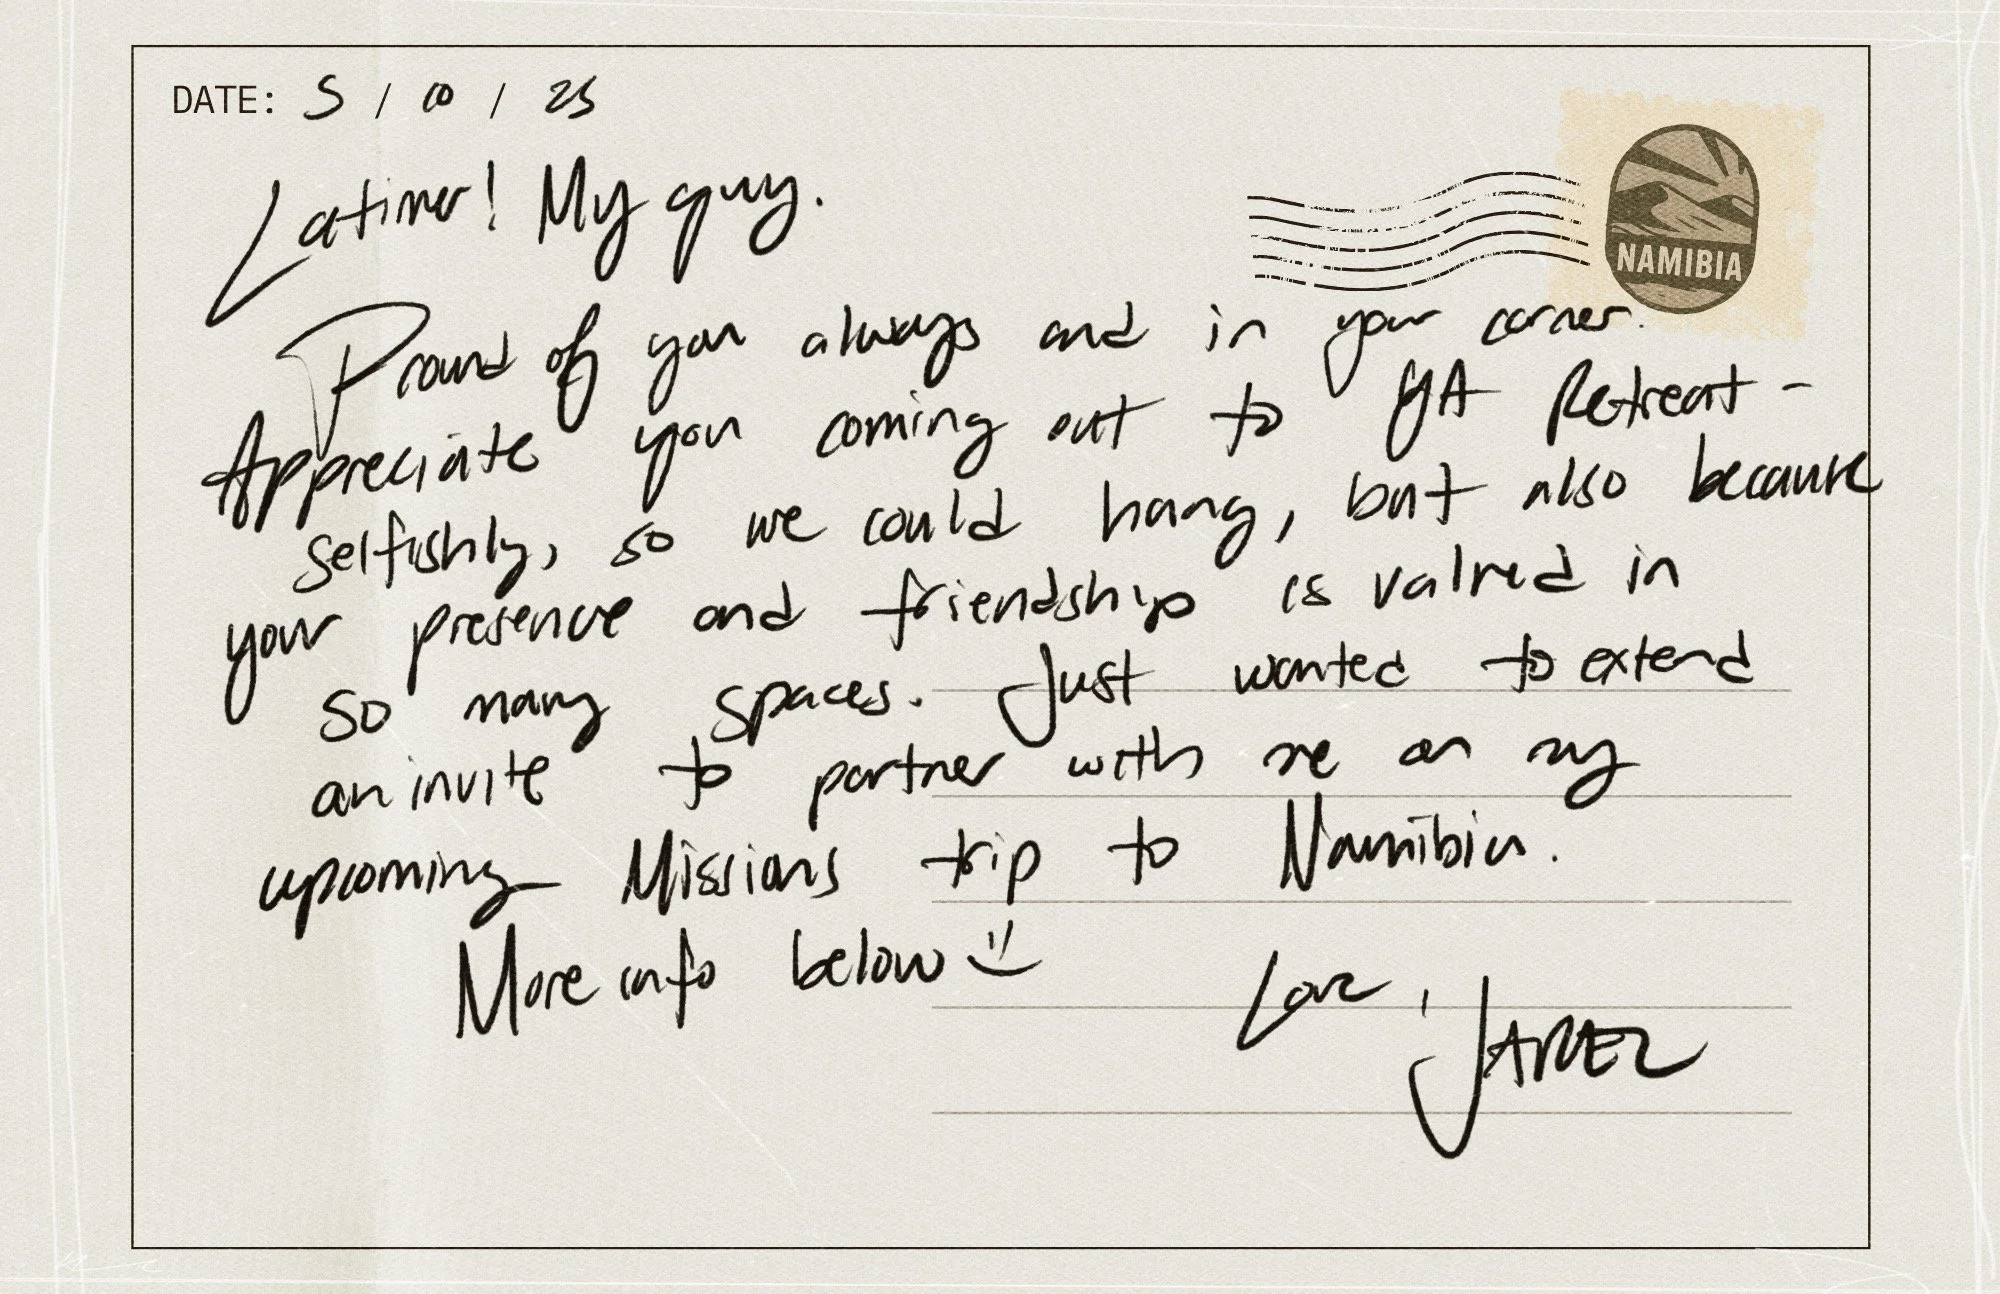 DATE: 5 / 10 / 25
Latimer! My guy.
NAMIBIA
Proud of you always and in your corner.
Appreciate you coming out to YA Retreat -
selfishly, so we could hang, but also because
your presence and friendship is valued in
so many spaces. Just wanted to extend
an invite to partner with me on my
upcoming Missions trip to Namibia.
More info below :)
Love,
JAREZ